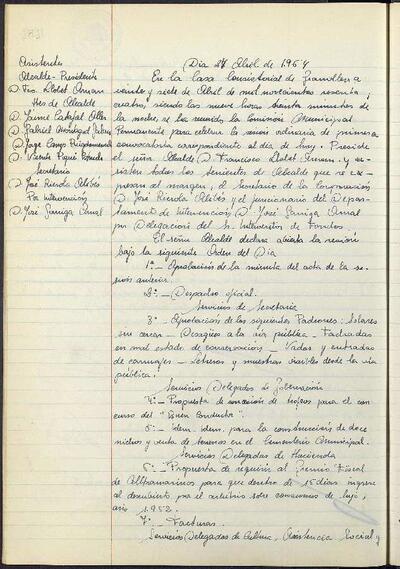 Asistentes
Alcalde-Presidente
D. Fco. Llobet Arnan
Ttes de Alcalde
D. Jaime
D. Gabriel
D. Jorge Camps
D. Vicente Piqué
Secretario
D. José Rierola Alibés
Por Intervención
D. José Garriga Amal
Dia 27 Abril de 1964
En la Casa Consistorial de Granollers a
veinte y siete de Abril de mil novecientos sesenta y
cuatro, siendo las nueve horas treinta minutos de
la noche, se ha reunido la Comisión Municipal
Permanente para celebrar la sesión ordinaria de primera
convocatoria correspondiente al dia de hoy. Preside
el señor Alcalde D. Francisco Llobet Arnan, y a-
sisten todos los Tenientes de Alcalde que se ex-
presan al margen, el Secretario de la Corporación
D. José Rierola Alibés y el funcionario del Depar-
tamento de Intervención D. José Garriga Amal
por Delegación del Sr. Interventor de Fondos.
El señor Alcalde declara abierta la reunión
bajo la siguiente Orden del Dia
1º.- Aprobación de la minuta del acta de la se-
sión anterior.
2º.- Despacho oficial.
Servicios de Secretaria
3º.- Aprobación de los siguientes Padrones: Solares
sin cercar - Desagües a la via pública - Fachadas
en mal estado de conservación - Vados y entradas
de carruajes - Letreros y muestras visibles desde la via
pública.
Servicios Delegados de Gobernación
4º.- Propuesta de concesión de trofeos para el con-
curso del "Buen Conductor".
5º.- idem. idem. para la construcción de doce
nichos y venta de terrenos en el Cementerio Municipal.
Servicios Delegados de Hacienda
6º.- Propuesta de requerir al Gremio Fiscal
de Ultramarinos para que dentro de 15 dias ingrese
el descubierto por el arbitrio sobre consumos de lujo,
año 1.963.
7º.- Facturas.
Servicios Delegados de Cultura, Asistencia Social y